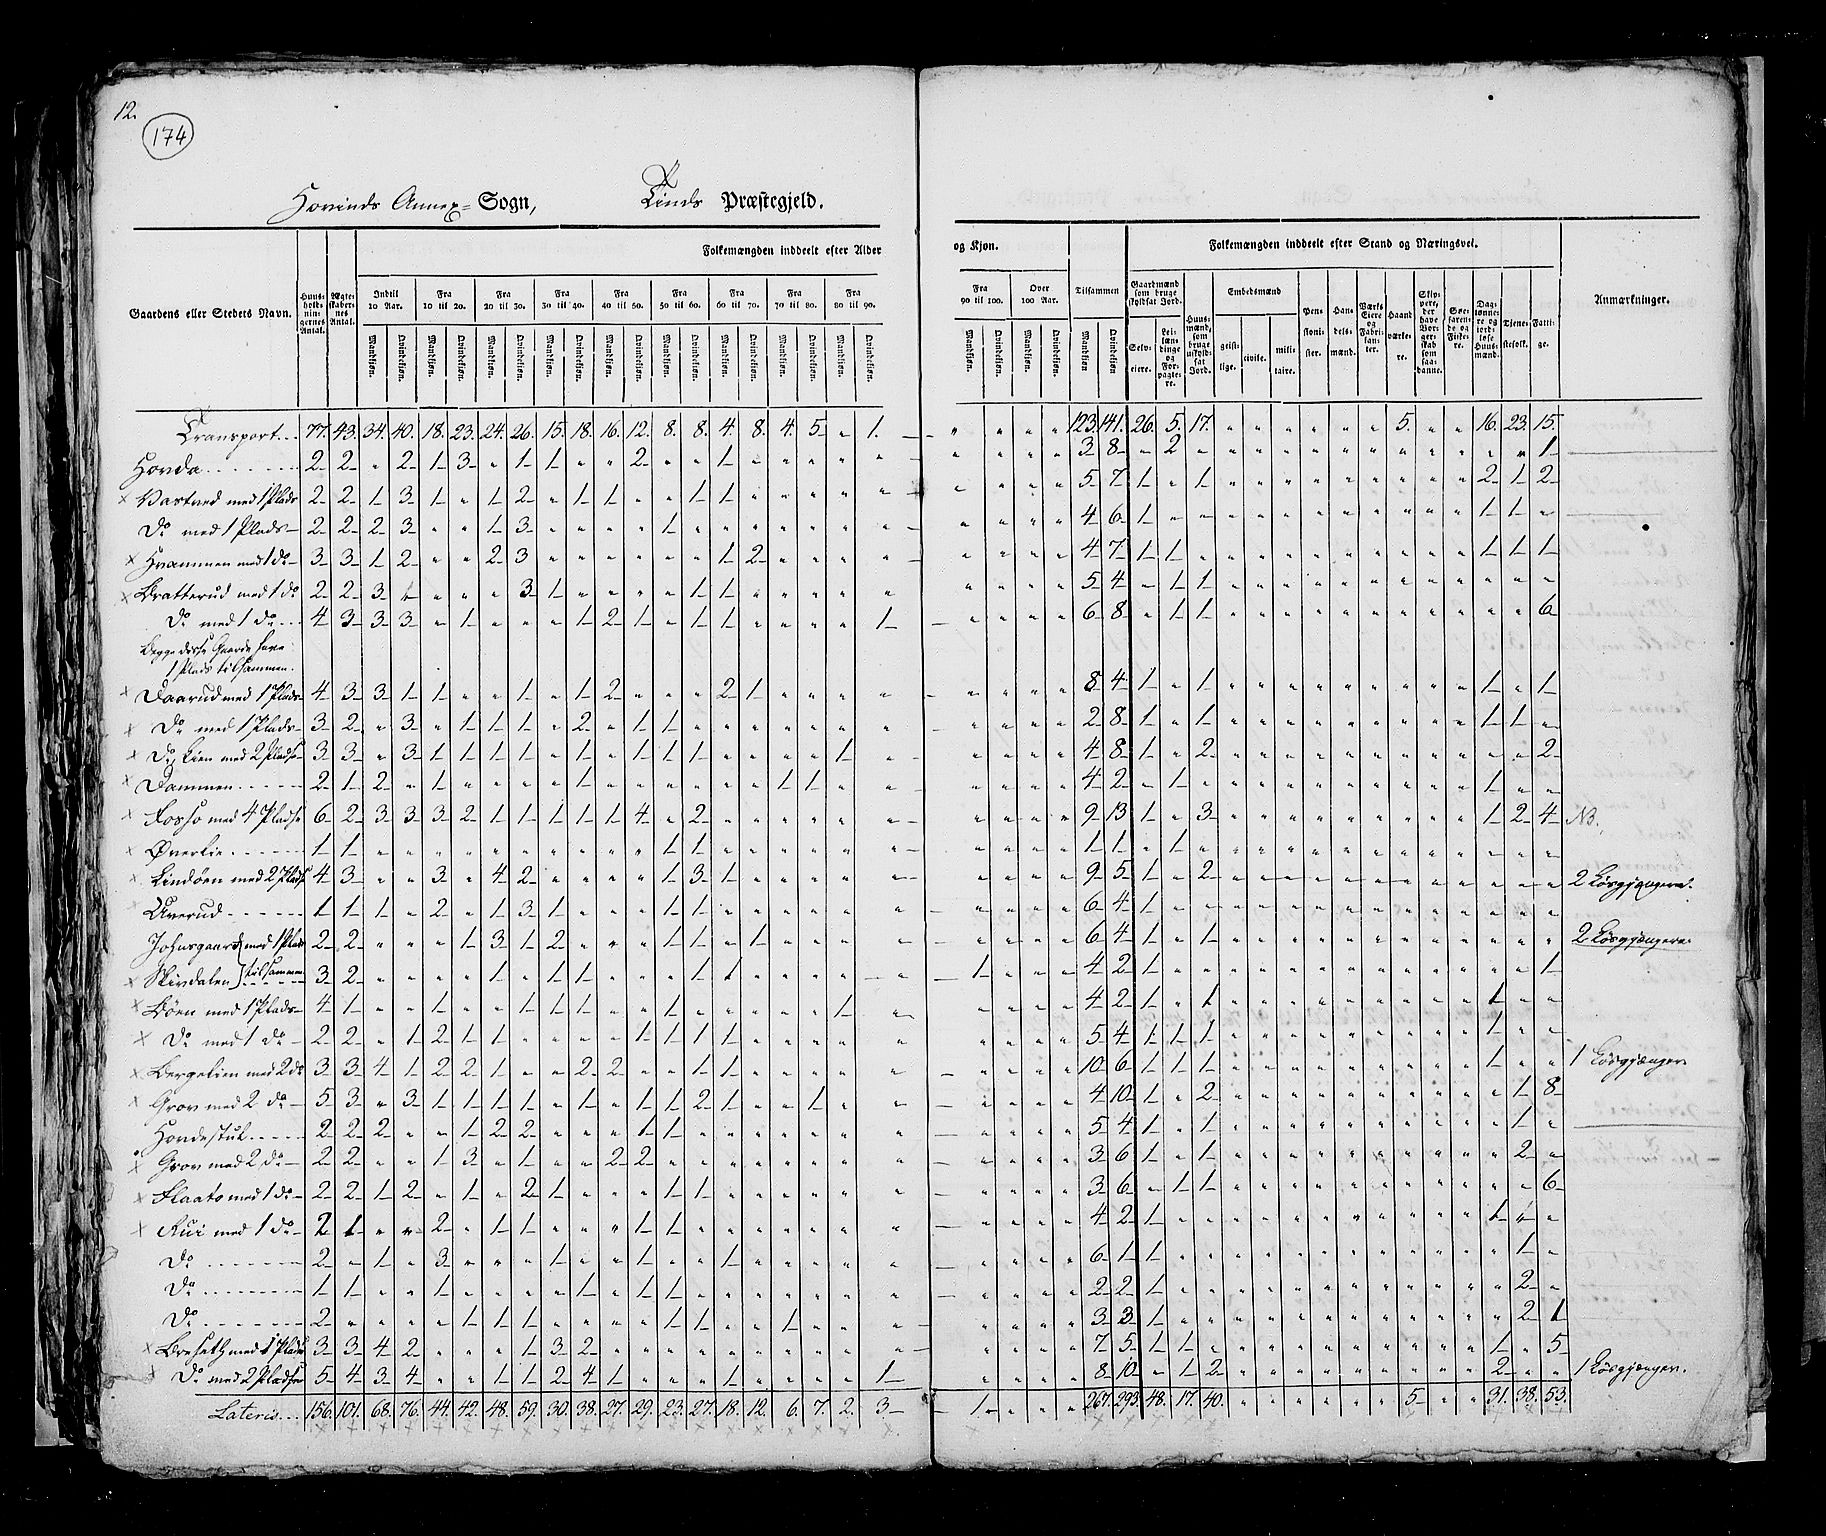 12.
174
Hovinds Annex= Sogn, Tinds Præstegjeld.
Gaardens eller Stedets Navn. Huus-holdningernes Antal. Ægteskabernes Antal. Folkemængden inddeelt efter Alder og Kjøn. Tilsammen Folkemængden inddeelt efter Stand og Næringsvei. Anmærkninger.
Indtil 10 Aar. Fra 10 til 20. Fra 20 til 30. Fra 30 til 40. Fra 40 til 50. Fra 50 til 60. Fra 60 til 70. Fra 70 til 80. Fra 80 til 90. Fra 90 til 100. Over 100 Aar.
Gaardmænd som bruge skyldsat Jord. Embedsmænd
Mandkjøn. Qvindekjøn.
Transport... 77. 43. 34. 40. 18. 23. 24. 26. 15. 18. 16. 12. 8. 8. 4. 8. 4. 5. " 1. " " " " 123. 141. 26. 5. 17. " " " " " " 5. " " 16. 23. 15.
Hovda 2 2 " 2 1 3 " 1 1 " " 2 " " 1 3 8 " 2 1
Vastved med 1 Plads 2 2 1 3 1 " 1 2 " 1 1 " " 1 1 5 7 1 " 1 2 1 2
Do med 1 Plads 2 2 2 3 " " 1 3 " " " " 1 4 6 1 1 1 "
Hvammen med 1 do 3 3 1 2 " " 2 3 " " " " " " 1 2 4 7 1 1 1 1 1
Bratterud med 1 do 2 2 3 " " " " 3 1 " " " " 1 1 5 4 " 1 1
Do med 1 do 4 3 3 3 " 1 " " " 1 2 1 " 1 1 1 6 8 " 1 1 6
Begge disse Gaarde have
1 Plads tilsammen.
Daarud med 1 Plads 4 3 3 1 1 " " 1 " 1 2 " " " 2 1 8 4 1 " 1 1 " 1
Do med 1 Plads 3 2 " 3 " 1 1 1 " 2 " 1 1 2 8 1 " 1 1 1 "
Do Lien med 2 Pladse 3 3 " 3 1 1 1 1 " 1 " 1 1 1 1 4 8 1 " 2 2
Dammen 2 1 2 " 1 " " " " 1 1 1 4 2 " 1 1 " "
Fosso med 4 Pladse 6 2 3 3 3 2 1 1 1 1 1 4 " 2 9 13 1 " 3 1 2 4 NB.
Øverlie 1 1 1 1 1 1 " 1
Lindøen med 2 Pladse 4 3 " " 3 " 4 2 " " " " 1 3 1 9 5 1 " 2 2 Løsgjængere.
Uverud 1 1 1 " 2 " 1 3 1 " " " 1 1 6 4 1
Johnsgaard med 1 Plads 2 2 " " " 1 3 1 2 " " " 1 1 " 1 6 4 1 " 1 2 Løsgjængere
Skirdalen tilsammen 3 2 " " " " 1 " 1 1 " " " 1 1 1 4 2 1 1
Bøen med 1 Plads 4 1 " " 1 " 1 " 1 " " " 1 1 4 2 1 " 1 1 " "
Do med 1 do 2 2 " 1 2 1 1 " " " " 1 1 1 1 5 4 1 1 1 1 " "
Bergelien med 2 do 3 3 4 1 2 2 1 " " 2 2 " " 1 1 10 6 1 1 1 1 " " 1 Løsgjænger
Grov med 2 do 5 3 " 3 1 1 1 1 " 1 " 1 1 2 1 " " 1 4 10 1 " 2 1 8
Hovdestul 2 2 2 " " 1 2 2 " " " 1 1 5 4 1 " 1 1 "
Grov med 2 do 2 2 " " 1 3 " 1 " " 2 2 3 6 1 " 1 2 "
Flaato med 1 do 2 2 1 2 " 1 " 2 1 " " " 1 1 3 6 " 1 1 6
Rui med 1 do 2 1 " " 2 " 1 1 " " " 1 1 4 2 1 1 1 "
Do 2 " 1 " 3 " " " 1 " " 1 " " 1 6 1 1 1 "
Do 1 1 " " 1 " " " " 1 " 1 1 2 2 1 2 "
Do 2 " " " " 1 1 1 " " " " 1 1 " " 1 3 3 1 2 1
Breseth med 1 Plads 3 3 4 2 " " " 1 3 2 7 5 1 1 1 " 5
Do med 2 Pladse 5 4 3 4 " " 1 1 2 4 1 " " " 1 1 8 10 " 1 2 2 " " 1 Løsgjænger.
Lateris... 156. 101. 68. 76. 44. 42. 48. 59. 30. 38. 27. 29. 23. 27. 18. 12. 6. 7. 2. 3 1 " " " 267. 293. 48. 17. 40. " " " " " " 5 " " 31. 38. 53.